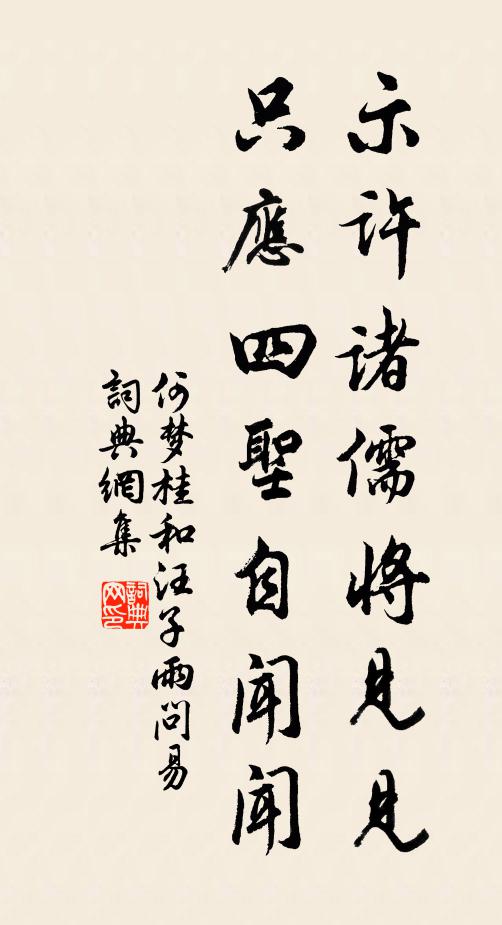 示許諸儒將見見
只應四聖自聞聞
何梦桂和汪子雨問易
詞典網集
詞典网印